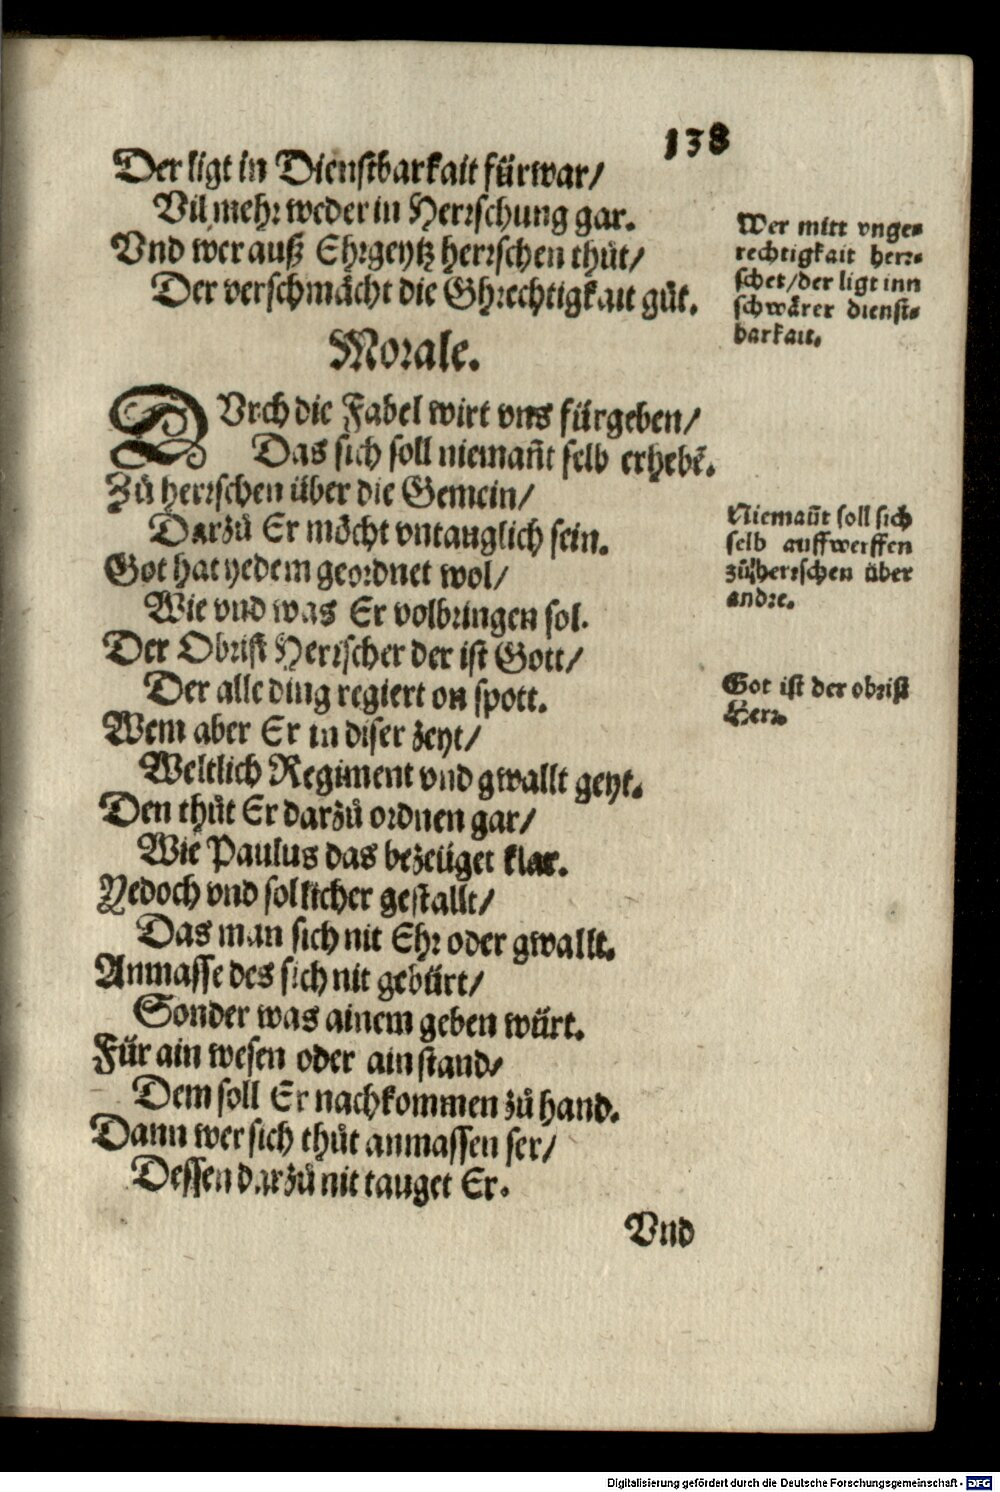 138
Der ligt in Dienstbarkait fürwar/
Vil mehr weder in Herrschung gar.
Vnd wer auß Ehrgeytz herrschen thůt/
Der verschmächt die Ghrechtigkait gůt.
Wer mitt vnge=
rechtigkait herr=
schet/der ligt inn
schwärer dienst=
barkait.
Morale.
DVrch die Fabel wirt vns fürgeben/
Das sich soll niemañt selb erhebẽ.
Zů herrschen über die Gemein/
Darzů Er möcht vntauglich sein.
Niemañt soll sich
selb auffwerffen
zů herrschen über
andre.
Got hat yedem geordnet wol/
Wie vnd was Er volbringen sol.
Der Obrist Herrscher der ist Gott/
Der alle ding regiert on spott.
Got ist der obrist
Herr.
Wem aber Er in diser zeyt/
Weltlich Regiment vnd gwallt geyt.
Den thůt Er darzů ordnen gar/
Wie Paulus das bezeüget klar.
Yedoch vnd sollicher gestallt/
Das man sich nit Ehr oder gwallt.
Anmasse des sich nit gebürt/
Sonder was ainem geben würt.
Für ain wesen oder ain stand/
Dem soll Er nachkommen zů hand.
Dann wer sich thůt anmassen ser/
Dessen darzů nit tauget Er.
Vnd
Digitalisierung gefördert durch die Deutsche Forschungsgemeinschaft - DFG